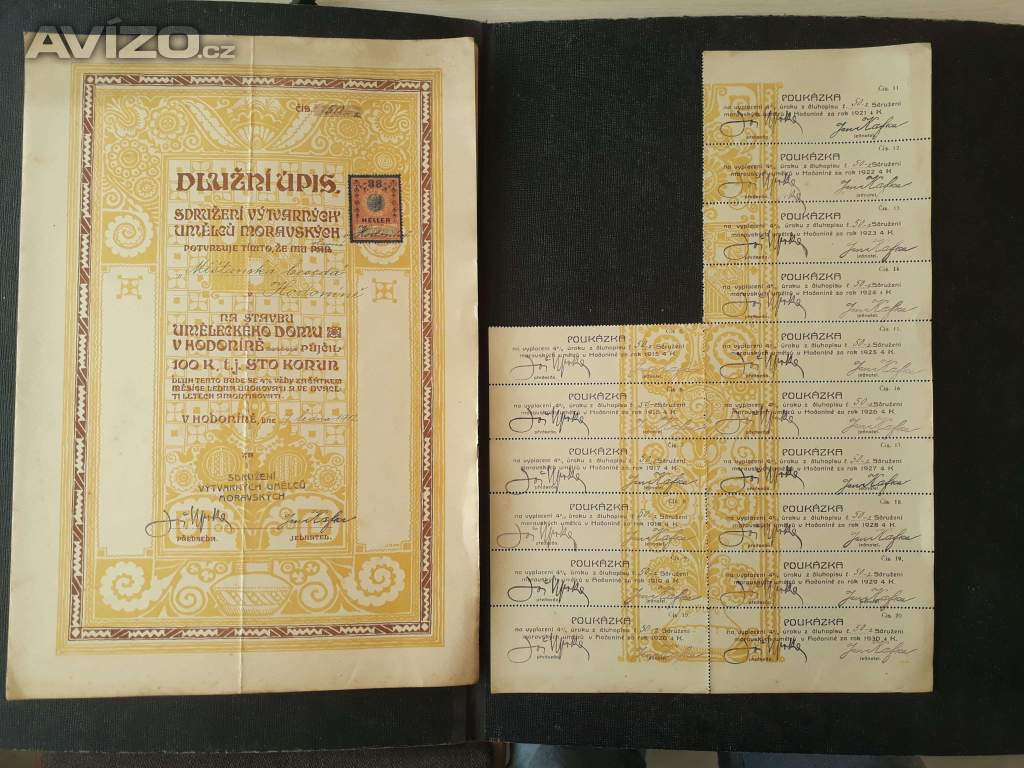 AVÍZO.cz
ČÍS.
DLUŽNÍ ÚPIS.
SDRUŽENÍ VÝTVARNÝCH
UMĚLCŮ MORAVSKÝCH
POTVRZUJE TÍMTO, ŽE MU PAN
Měšťanská beseda
v Hodoníně
NA STAVBU
UMĚLECKÉHO DOMU
V HODONÍNĚ PŮJČIL
100 K, t.j. STO KORUN
DLUH TENTO BUDE SE 4% VŽDY ZAČÁTKEM
MĚSÍCE LEDNA ÚROKOVATI A VE DVACE-
TI LETECH AMORTISOVATI.
V HODONÍNĚ, DNE
ZA
SDRUŽENÍ
VÝTVARNÝCH UMĚLCŮ
MORAVSKÝCH
PŘEDSEDA. JEDNATEL.
88
HELLER
POUKÁZKA
na vyplacení 4% úroku z dluhopisu č. 50 Sdružení
moravských umělců v Hodoníně za rok 1915 4 K
předseda.
Čís. 6.
POUKÁZKA
na vyplacení 4% úroku z dluhopisu č. 50 Sdružení
moravských umělců v Hodoníně za rok 1916 4 K
předseda.
Čís. 7.
POUKÁZKA
na vyplacení 4% úroku z dluhopisu č. 50 Sdružení
moravských umělců v Hodoníně za rok 1917 4 K
předseda. jednatel.
Čís. 8.
POUKÁZKA
na vyplacení 4% úroku z dluhopisu č. 50 Sdružení
moravských umělců v Hodoníně za rok 1918 4 K
předseda. jednatel.
POUKÁZKA
na vyplacení 4% úroku z dluhopisu č. 50 Sdružení
moravských umělců v Hodoníně za rok 1919 4 K
předseda. jednatel.
Čís. 10.
POUKÁZKA
na vyplacení 4% úroku z dluhopisu č. 50 Sdružení
moravských umělců v Hodoníně za rok 1920 4 K
předseda.
Čís. 11.
POUKÁZKA
na vyplacení 4% úroku z dluhopisu č. 50 Sdružení
moravských umělců v Hodoníně za rok 1921 4 K
předseda. jednatel.
Čís. 12.
POUKÁZKA
na vyplacení 4% úroku z dluhopisu č. 50 Sdružení
moravských umělců v Hodoníně za rok 1922 4 K
předseda. jednatel.
Čís. 13.
POUKÁZKA
na vyplacení 4% úroku z dluhopisu č. 50 Sdružení
moravských umělců v Hodoníně za rok 1923 4 K
předseda. jednatel.
Čís. 14.
POUKÁZKA
na vyplacení 4% úroku z dluhopisu č. 50 Sdružení
moravských umělců v Hodoníně za rok 1924 4 K
předseda. jednatel.
Čís. 15.
POUKÁZKA
na vyplacení 4% úroku z dluhopisu č. 50 Sdružení
moravských umělců v Hodoníně za rok 1925 4 K
předseda. jednatel.
Čís. 16.
POUKÁZKA
na vyplacení 4% úroku z dluhopisu č. 50 Sdružení
moravských umělců v Hodoníně za rok 1926 4 K
předseda. jednatel.
Čís. 17.
POUKÁZKA
na vyplacení 4% úroku z dluhopisu č. 50 Sdružení
moravských umělců v Hodoníně za rok 1927 4 K
předseda. jednatel.
Čís. 18.
POUKÁZKA
na vyplacení 4% úroku z dluhopisu č. 50 Sdružení
moravských umělců v Hodoníně za rok 1928 4 K
předseda. jednatel.
Čís. 19.
POUKÁZKA
na vyplacení 4% úroku z dluhopisu č. 50 Sdružení
moravských umělců v Hodoníně za rok 1929 4 K
předseda. jednatel.
Čís. 20.
POUKÁZKA
na vyplacení 4% úroku z dluhopisu č. 50 Sdružení
moravských umělců v Hodoníně za rok 1930 4 K
předseda. jednatel.